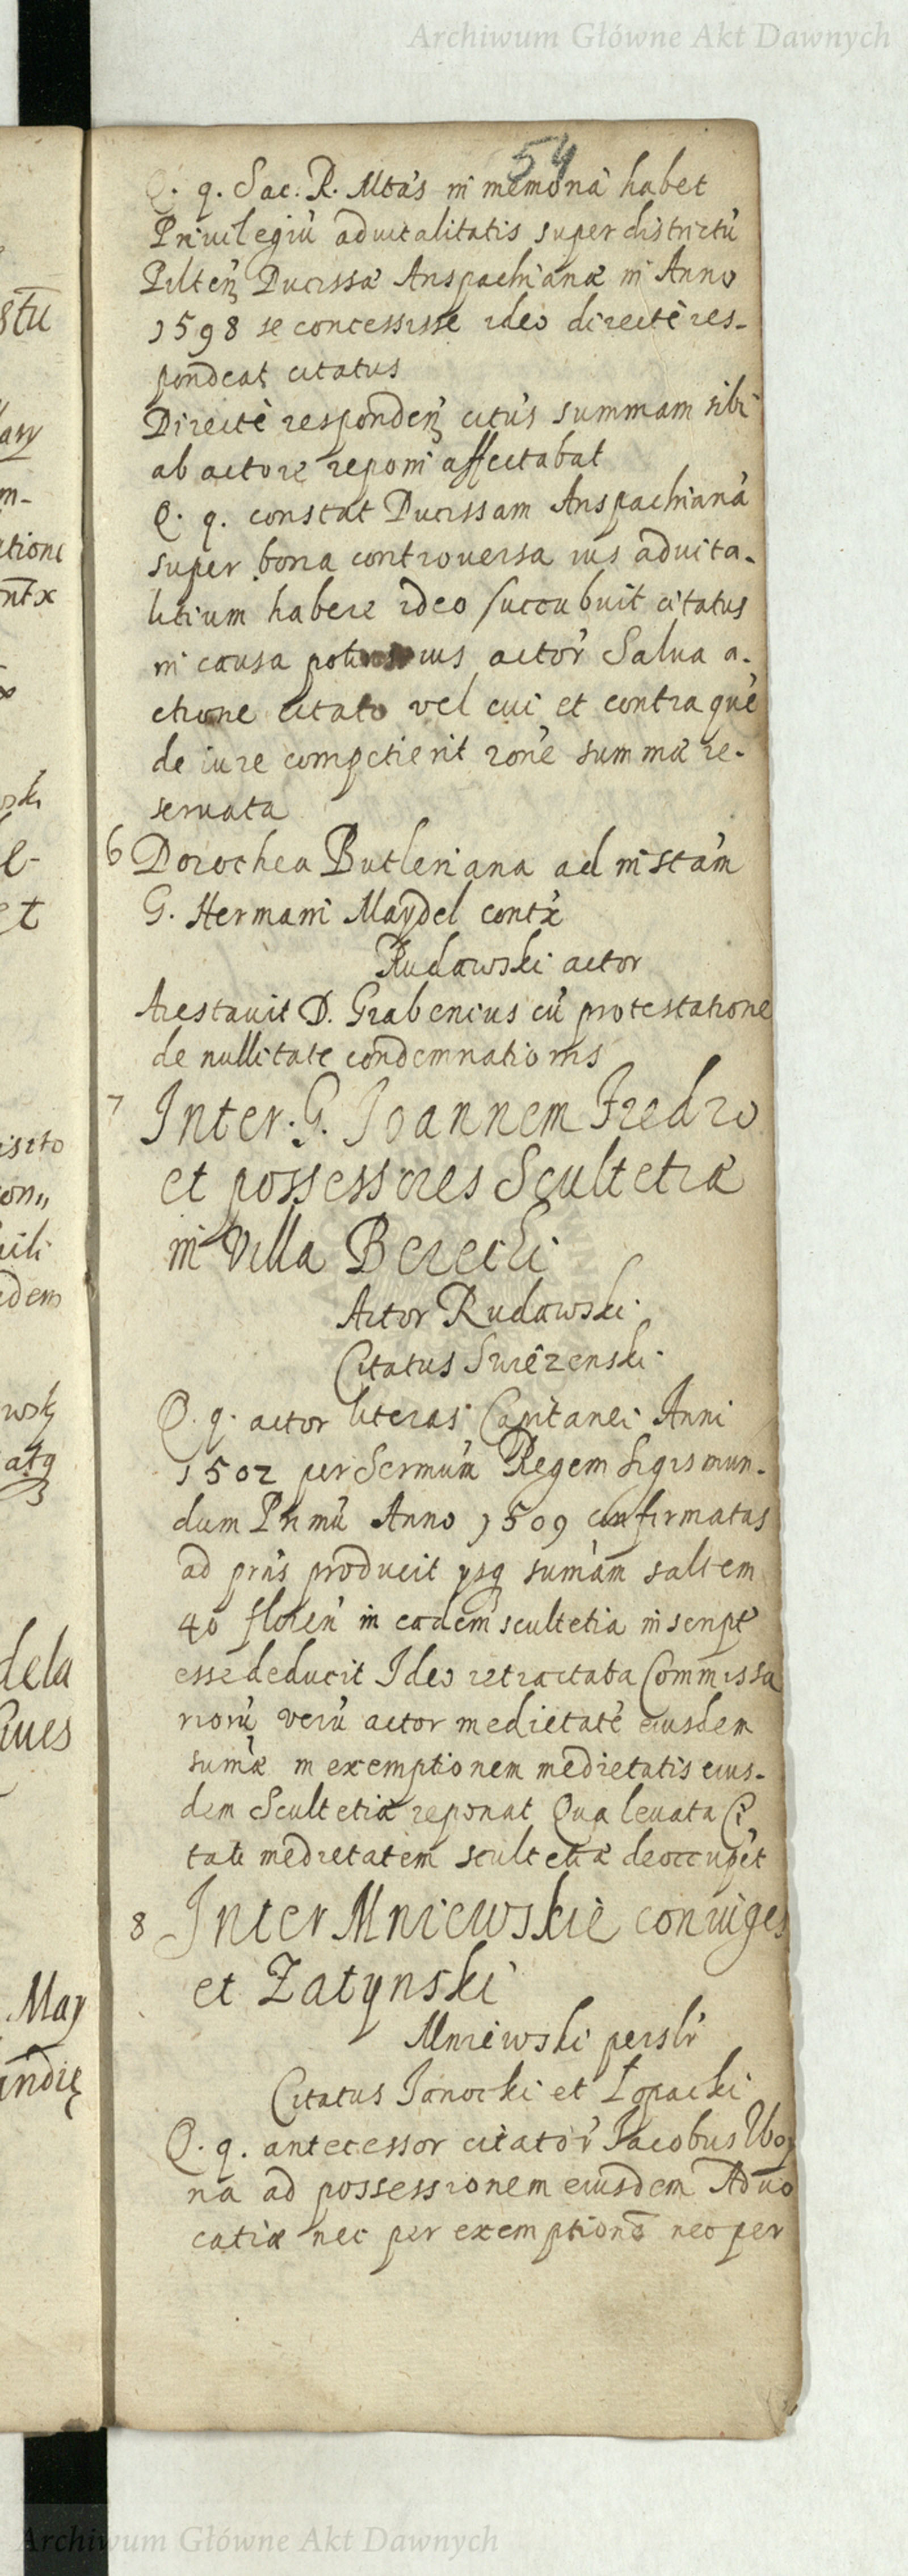 Archiwum Główne Akt Dawnych
54
Q. q. Sac. R. Mtas in memoria habet
Priuilegiũ aduitalitatis super districtũ
Pilteñ Ducissæ Anspachianæ in Anno
1598 se concessisse ideo directè res-
pondeat citatus
Directè respondeñ citus summam sibi
ab actore reponi affectabat
Q. q. constat Ducissam Anspachianã
super bona controuersa ius aduita-
litium habere ideo succubuit citatus
in causa ius actor Salua a-
ctione citato vel cui et contra quẽ
de iure competierit rõne summæ re-
seruata
6 Dorothea Butleriana ad instãm
G. Hermani Maydel contx
Rudawski actor
Arestauit D. Grabencius cũ protestatione
de nullitate condemnationis
7 Inter G. Joannem Fredro
et possessores Scultetiæ
in Villa Berechi
Actor Rudawski
Citatus
Q. q. actor literas Capitanei Anni
1502 per Sermũm Regem Sigismun-
dum Primũ Anno 1509 confirmatas
ad prñs producit ysq sumãm saltem
40 floreñ in eadem scultetia inscript
esse deducit Ideo retractata Commissa
riorũ verũ actor medietatẽ eiusdem
sumæ in exemptionem medietatis eius-
dem Scultetiæ reponat Qua leuata Ci
tati medietatem scultetiæ deoccupẽt
8 Inter Mniewskie coniuges
et Zatynski
Mniewski persłr
Citatus Janocki et Łopacki
Q. q. antecessor citatõr Jacobus Woy
na ad possessionem eiusdem Aduo
catiæ nec per exemptionẽ nec per
Archiwum Główne Akt Dawnych